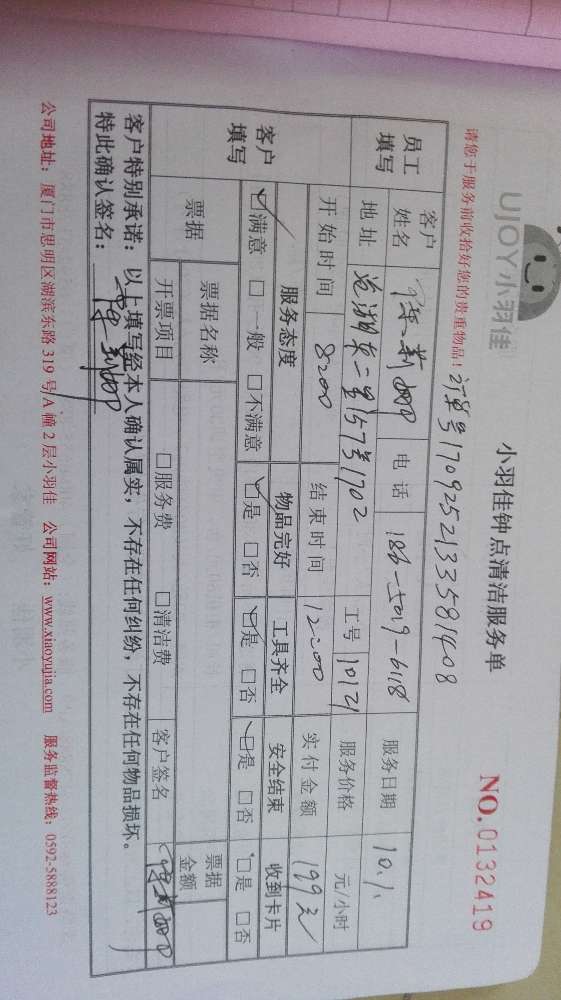 UJOY小羽佳
小羽佳钟点清洁服务单
NO.0132419
请您于服务前收拾好您的贵重物品！
订单号1709252133581408
员工填写 客户姓名 电话 186-5019-6118 服务日期 10.1.
地址 工号 10121 服务价格 元/小时
开始时间 8:00 结束时间 12:00 实付金额 199元
客户填写 服务态度 物品完好 工具齐全 安全结束 收到卡片
☑满意 □一般 □不满意 ☑是 □否 ☑是 □否 ☑是 □否 ☑是 □否
票据 票据名称 票据金额
开票项目 □服务费 □清洁费 客户签名
客户特别承诺：以上填写经本人确认属实，不存在任何纠纷，不存在任何物品损坏。
特此确认签名：
公司地址：厦门市思明区湖滨东路 319 号/A 幢 2 层小羽佳 公司网站：www.xiaoyujia.com 服务监督热线：0592-5888123